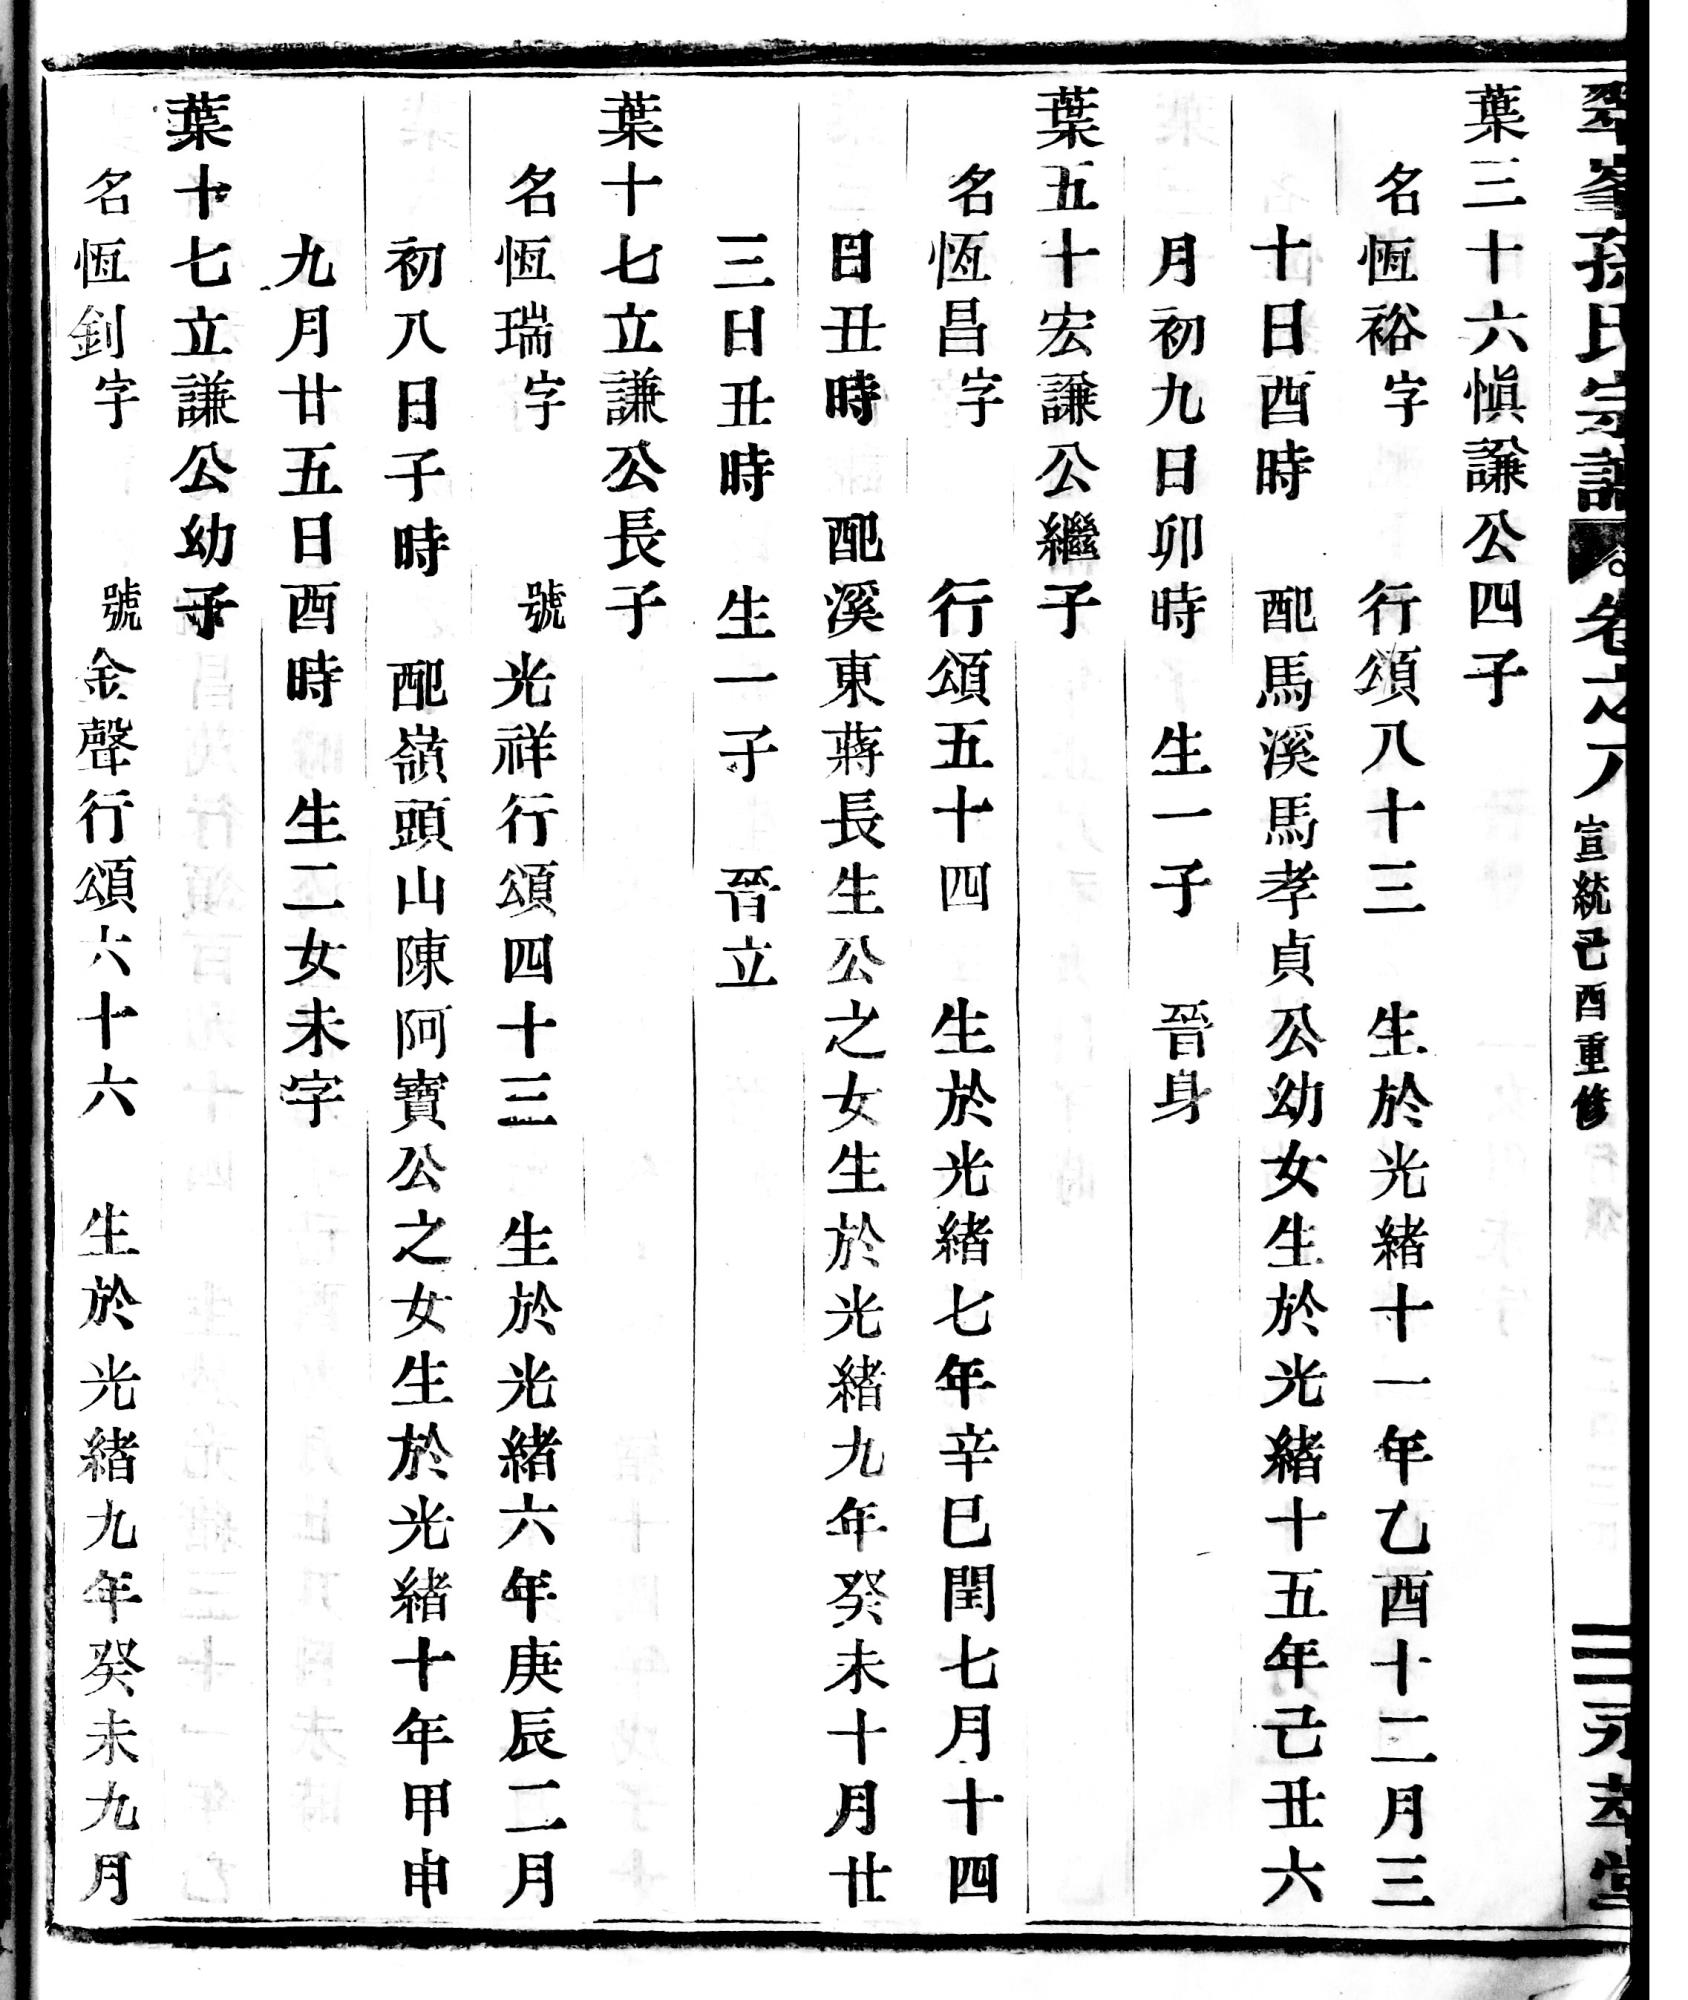 翠峯孫氏宗譜 卷之八 宣統己酉重修 永萃堂
葉三十六愼謙公四子
名恆裕字 行頌八十三 生於光緒十一年乙酉十二月三
十日酉時 配馬溪馬孝貞公幼女生於光緒十五年己丑六
月初九日卯時 生一子 晉身
葉五十宏謙公繼子
名恆昌字 行頌五十四 生於光緒七年辛巳閏七月十四
日丑時 配溪東蔣長生公之女生於光緒九年癸未十月廿
三日丑時 生一子 晉立
葉十七立謙公長子
名恆瑞字 號光祥行頌四十三 生於光緒六年庚辰二月
初八日子時 配嶺頭山陳阿寶公之女生於光緒十年甲申
九月廿五日酉時 生二女未字
葉十七立謙公幼子
名恆釗字 號金聲行頌六十六 生於光緒九年癸未九月